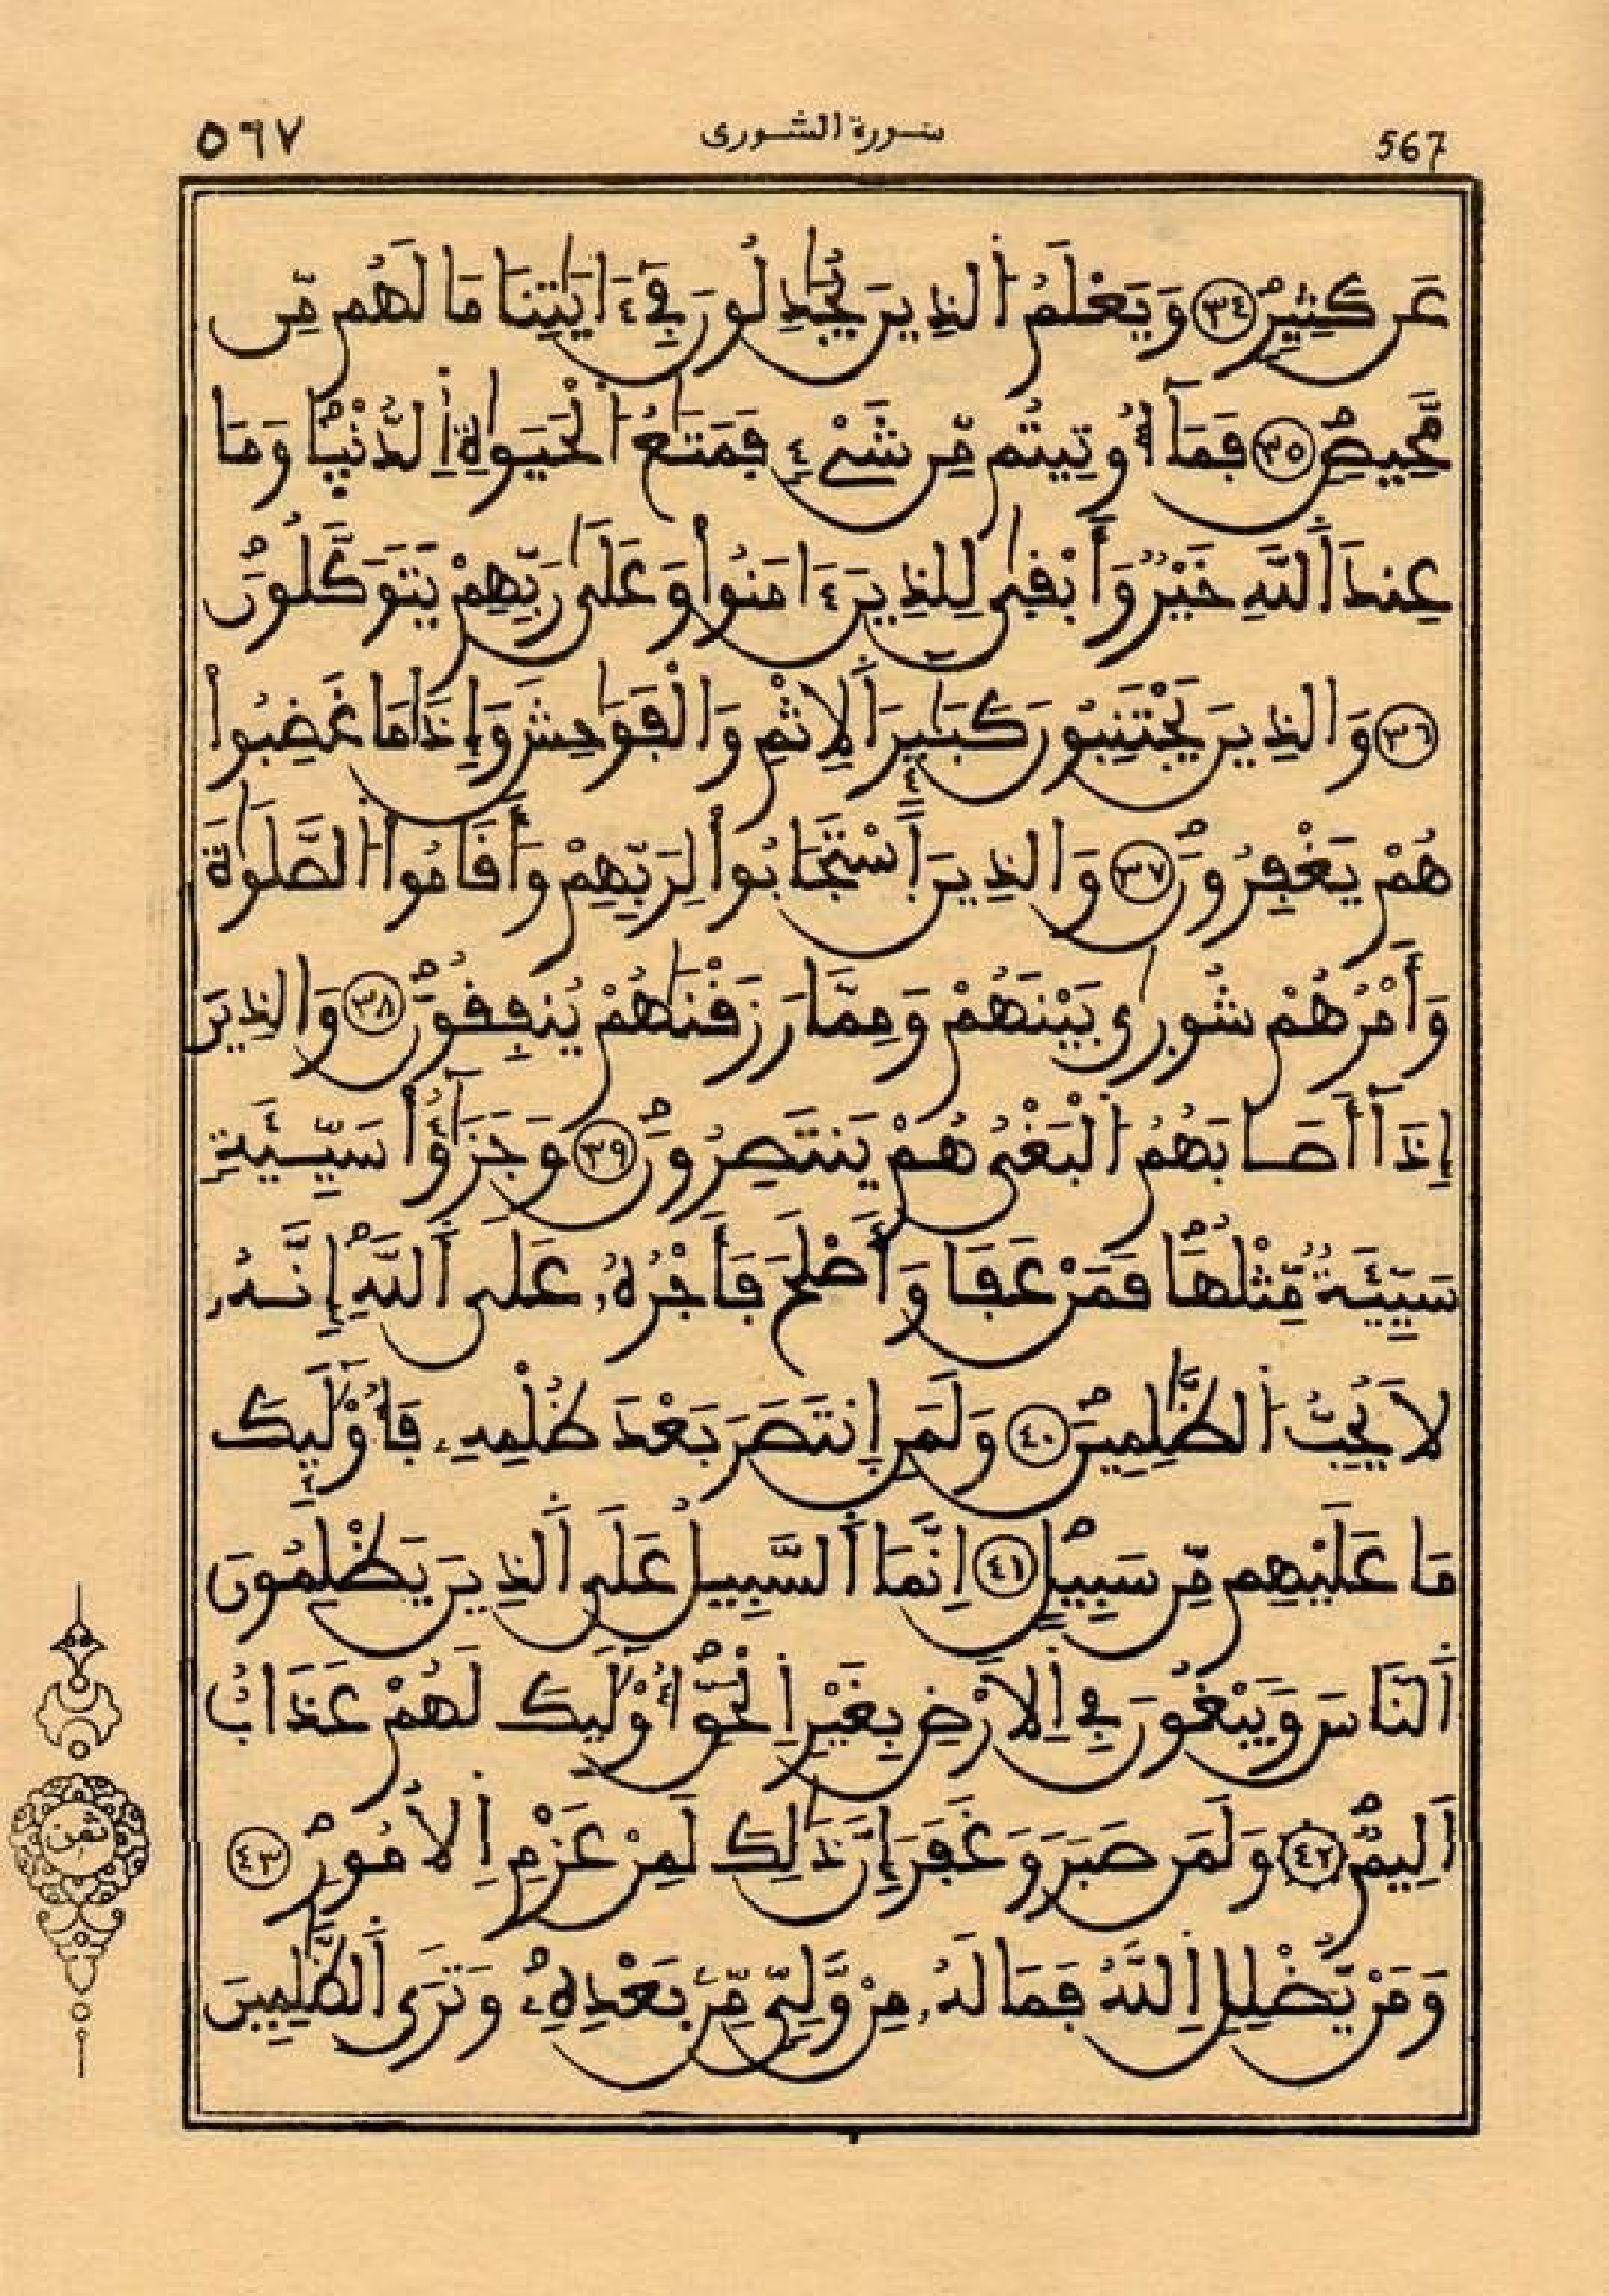 567 سورة الشورى ٥٦٧
عَن كَثِيرٍ ٣٤ وَيَعْلَمُ اَ۬لذِينَ يُجَٰدِلُونَ فِےٓ ءَايَٰتِنَا مَا لَهُم مِّن
مَّحِيصٍ ٣٥ فَمَآ أُوتِيتُم مِّن شَےْءٖ فَمَتَٰعُ اُ۬لْحَيَوٰةِ اِ۬لدُّنْي۪ا وَمَا
عِندَ اَ۬للَّهِ خَيْرٞ وَأَبْق۪يٰ لِلذِينَ ءَامَنُواْ وَعَلَيٰ رَبِّهِمْ يَتَوَكَّلُونَ
٣٦ وَالذِينَ يَجْتَنِبُونَ كَبَٰٓئِرَ اَ۬لِاثْمِ وَالْفَوَٰحِشَ وَإِذَا مَا غَضِبُواْ
هُمْ يَغْفِرُونَ ٣٧ وَالذِينَ اَ۪سْتَجَابُواْ لِرَبِّهِمْ وَأَقَامُواْ اُ۬لصَّلَوٰةَ
وَأَمْرُهُمْ شُور۪يٰ بَيْنَهُمْ وَمِمَّا رَزَقْنَٰهُمْ يُنفِقُونَ ٣٨ وَالذِينَ
إِذَآ أَصَابَهُمُ اُ۬لْبَغْيُ هُمْ يَنتَصِرُونَ ٣٩ وَجَزَٰٓؤُاْ سَيِّئَةٖ
سَيِّئَةٞ مِّثْلُهَا فَمَنْ عَفَا وَأَصْلَحَ فَأَجْرُهُۥ عَلَي اَ۬للَّهِ إِنَّهُۥ
لَا يُحِبُّ اُ۬لظَّٰلِمِينَ ٤٠ وَلَمَنِ اِ۪نتَصَرَ بَعْدَ ظُلْمِهِۦ فَأُوْلَٰٓئِكَ
مَا عَلَيْهِم مِّن سَبِيلٍ ٤١ اِنَّمَا اَ۬لسَّبِيلُ عَلَي اَ۬لذِينَ يَظْلِمُونَ
اَ۬لنَّاسَ وَيَبْغُونَ فِے اِ۬لَارْضِ بِغَيْرِ اِ۬لْحَقِّ أُوْلَٰٓئِكَ لَهُمْ عَذَابٌ
اَلِيمٞ ٤٢ وَلَمَن صَبَرَ وَغَفَرَ إِنَّ ذَٰلِكَ لَمِنْ عَزْمِ اِ۬لُامُورِ ٤٣
وَمَنْ يُّضْلِلِ اِ۬للَّهُ فَمَا لَهُۥ مِنْ وَّلِيّٖ مِّنۢ بَعْدِهِۦ وَتَرَي اَ۬لظَّٰلِمِينَ
ثمن